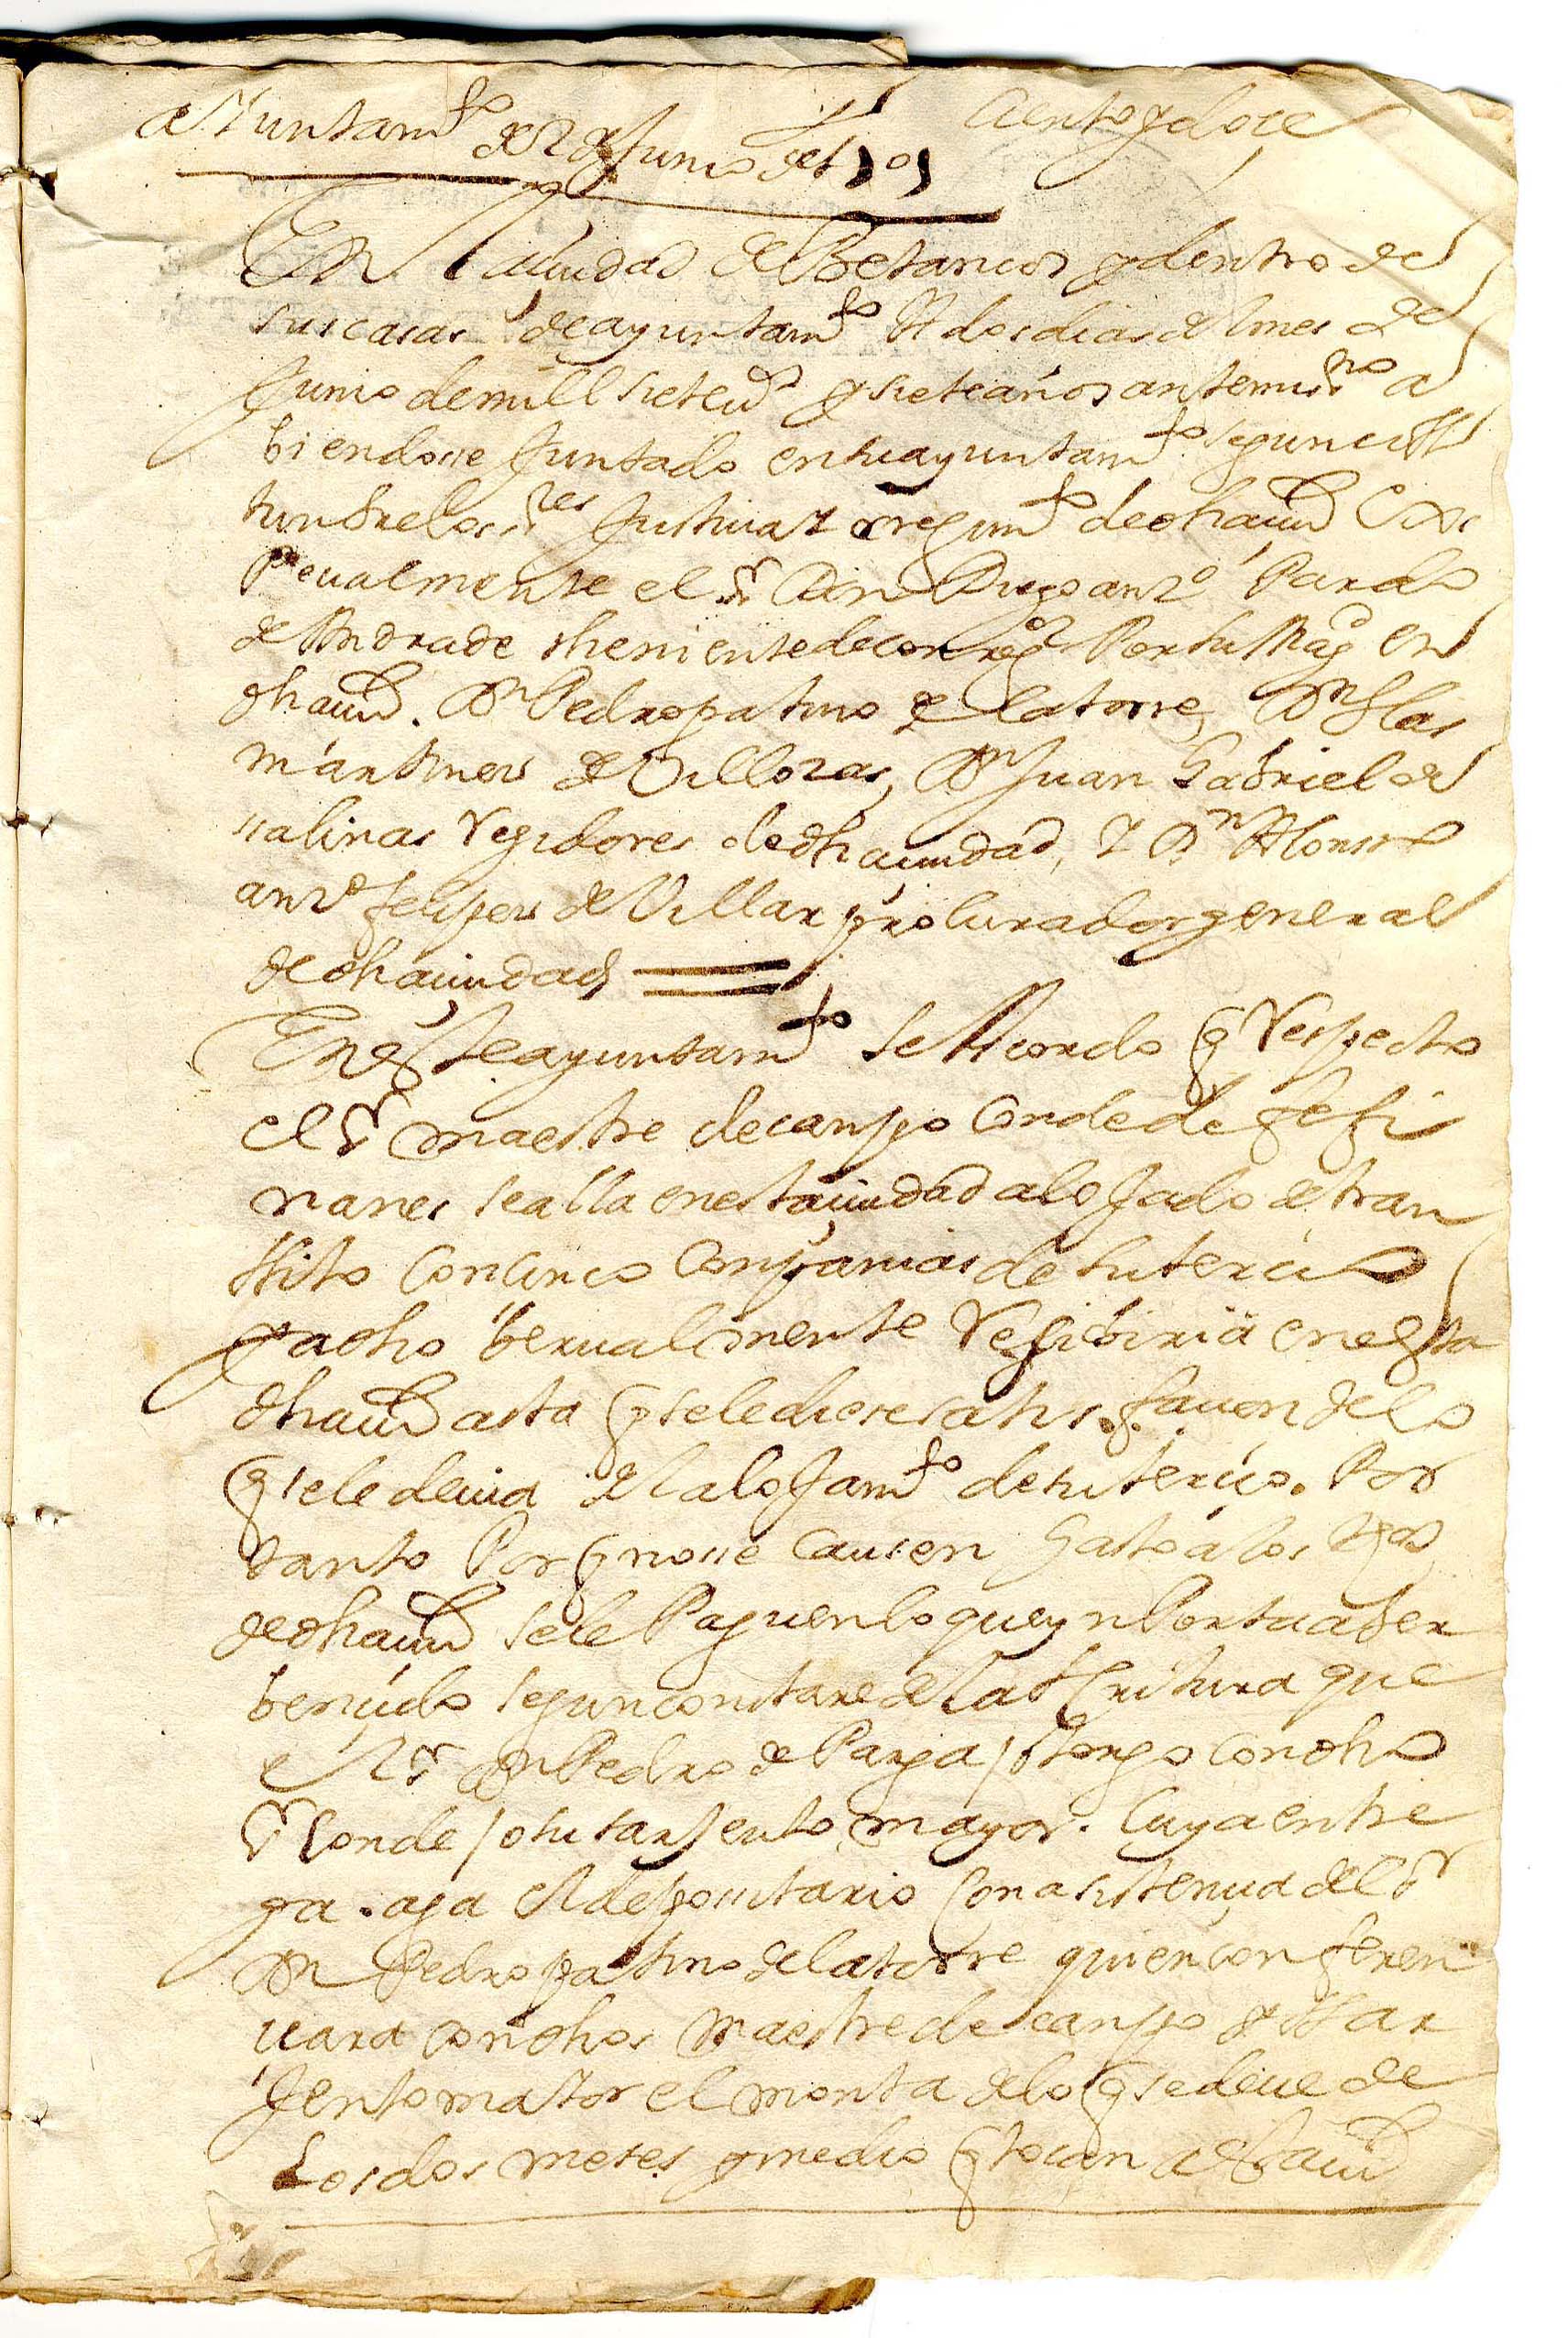 Ciento y doce
aYuntamto de 2 de Junio de
En la ciudad de Betanços y dentro de
sus casas de ayuntamto A dos dias del mes de
Junio de mill setecs y siete años ante mi sno a
biendosse Juntado en su ayuntamto segun cos
tunbre los sres Justicia Y regimto de dha ciud Es
Pecialmente el sr Don Diego anto Pardo
de Andrade theniente de corregor Por su Magd en
dha ciud. Dn Pedro patino de la torre, Dn Blas
martines de Villozas, Dn Juan Gabriel de
salinas Regidores de dha ciudad, Y Dn Alonsso
anto felipes de Villar procurador general
de dha ciudad
En este ayuntamto se Acordo q Respecto
el sr maestre de canpo Conde de fefi
nanes se alla en esta ciudad alojado de tran
ssito Con cinco Conpanias de su tercio
y a dho berualmente Resibiria en esta
dha ciud asta q se le diese satisfacion de lo
q se le deuia del alojamto de su tercio. Por
tanto Por q no sse Causen Gasto a los
de dha ciud se le Paguen lo que ynPorta aber
bençido segun constare de la EsCritura que
el sr Dn Pedro de Parga otorgo Con dho
sr Conde o su sarJento mayor. Cuya entre
ga aga el depossitario Con asistençia del sr
Dn Pedro patino de la torre quien conferen
ciara con dhos maestre de canpo y ssar
Jento maYor el monta de lo q se deue de
Los dos meses y medio q tocan a esta ciud